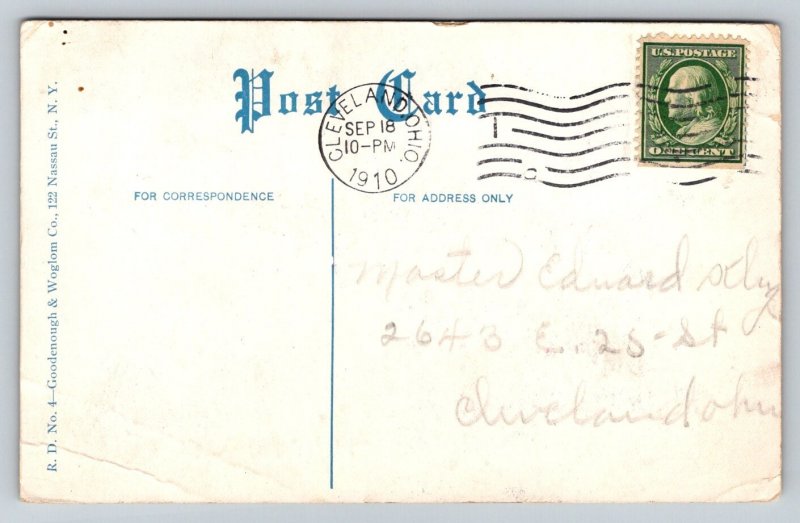 Post Card
CLEVELAND, OHIO.
SEP 18
10-PM
1910
U.S. POSTAGE
ONE CENT
FOR CORRESPONDENCE
FOR ADDRESS ONLY
R. D. No. 4—Goodenough & Woglom Co., 122 Nassau St., N. Y.
Master Eduard
2643 E. 25-St
Cleveland Ohio